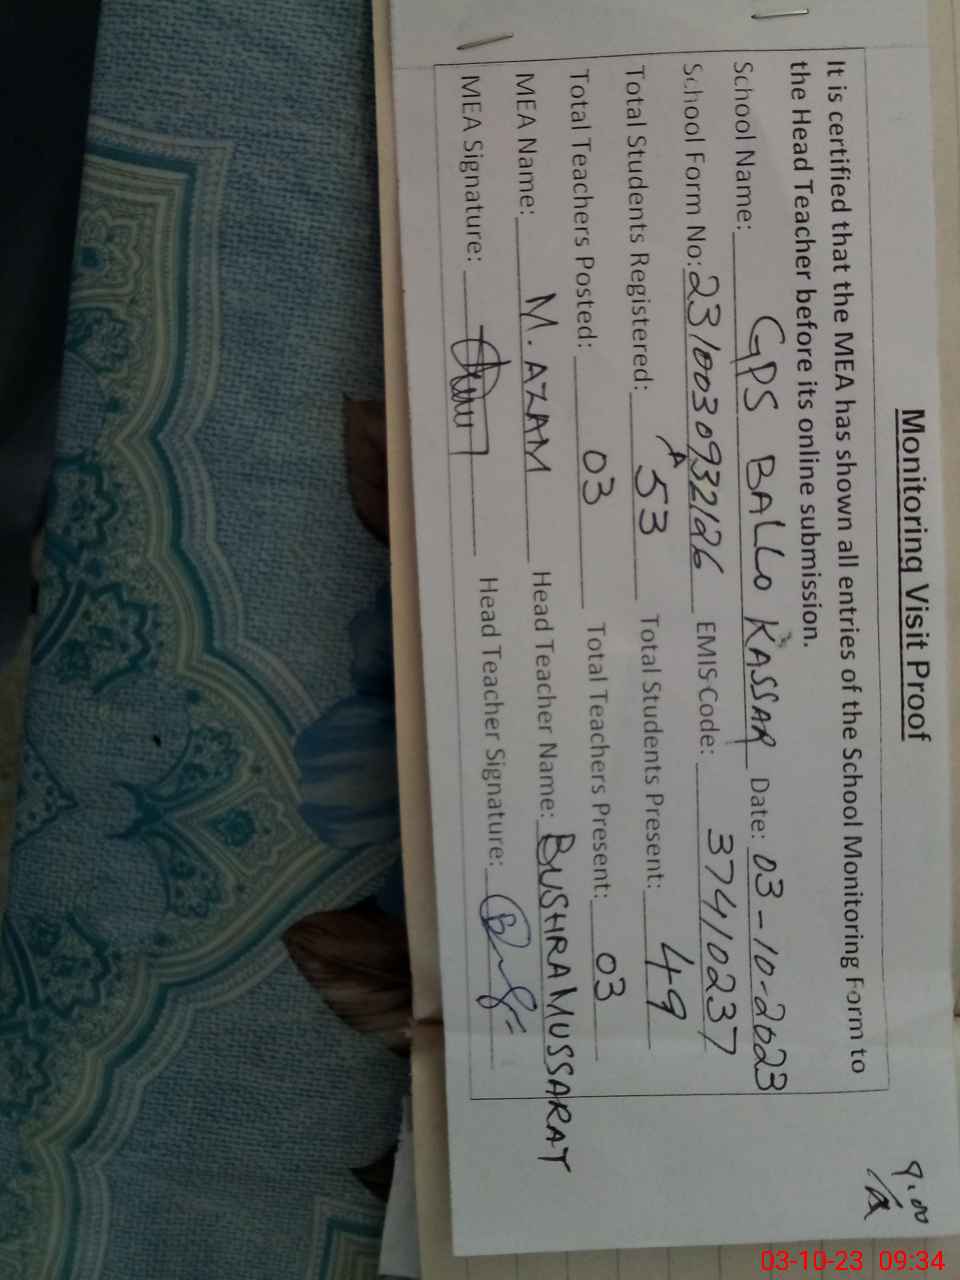 Monitoring Visit Proof
It is certified that the MEA has shown all entries of the School Monitoring Form to
the Head Teacher before its online submission.
School Name: GPS BALLO KASSAR Date: 03-10-2023
School Form No: 2310030932126 EMIS Code: 37410237
Total Students Registered: A 53 Total Students Present: 49
Total Teachers Posted: 03 Total Teachers Present: 03
MEA Name: M. AZAM Head Teacher Name: BUSHRA MUSSARAT
MEA Signature: Head Teacher Signature:
9.00
03-10-23 09:34